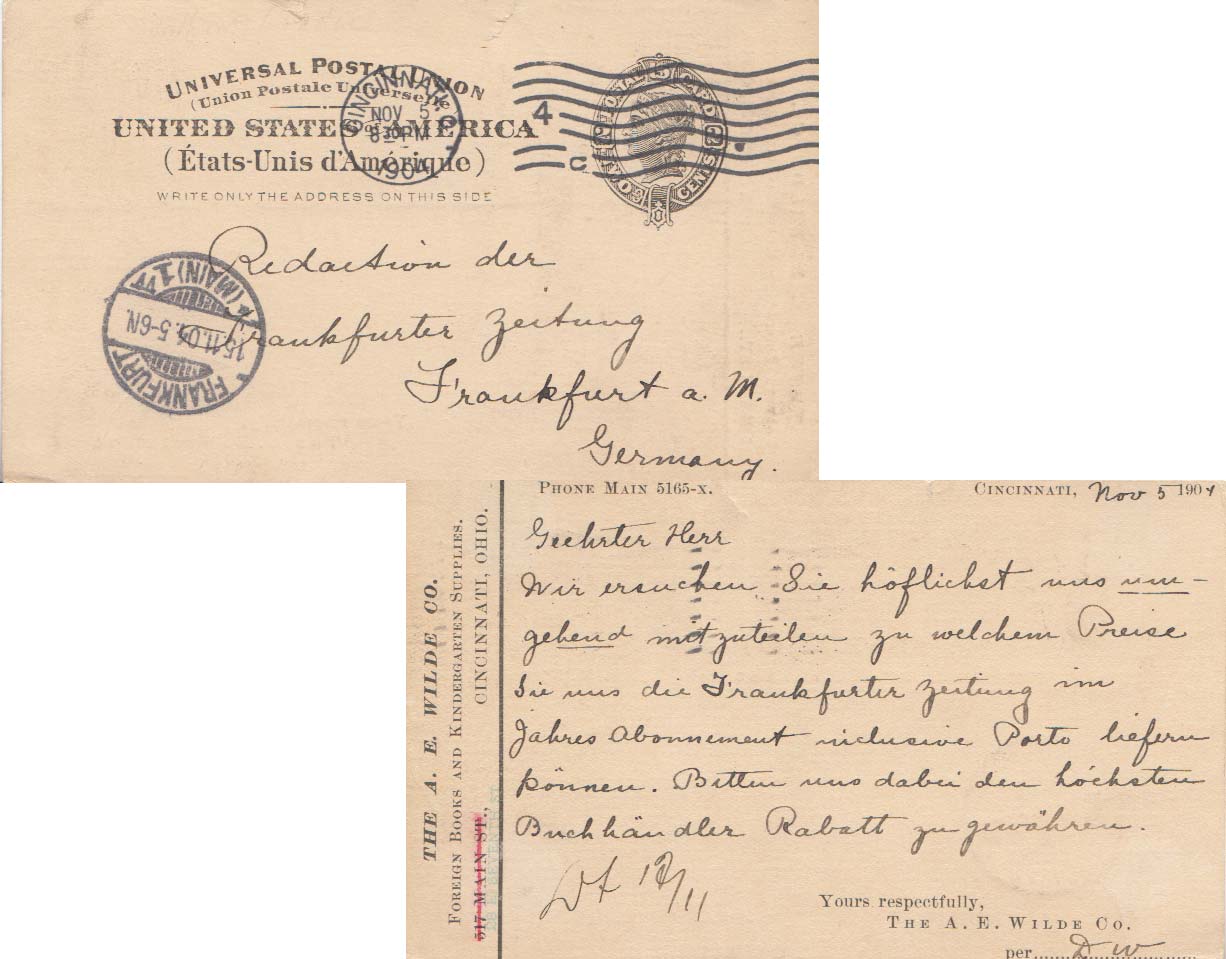 UNIVERSAL POSTAL UNION
(Union Postale Universelle)
UNITED STATES OF AMERICA
(États-Unis d'Amérique)
WRITE ONLY THE ADDRESS ON THIS SIDE
CINCINNATI, O.
NOV 5
8-30 PM
1904
4
C
TWO CENTS
Redaction der
Frankfurter Zeitung
Frankfurt a. M.
Germany.
FRANKFURT
15.11.04. 5-6N.
(MAIN) 1
PHONE MAIN 5165-X.
CINCINNATI, Nov 5 1904
THE A. E. WILDE CO.
FOREIGN BOOKS AND KINDERGARTEN SUPPLIES.
517 MAIN ST., CINCINNATI, OHIO.
Geehrter Herr
Wir ersuchen Sie höflichst uns um-
gehend mitzuteilen zu welchem Preise
Sie uns die Frankfurter Zeitung im
Jahres Abonnement inclusive Porto liefern
können. Bitten uns dabei den höchsten
Buchhändler Rabatt zu gewähren.
Yours respectfully,
THE A. E. WILDE CO.
per D W